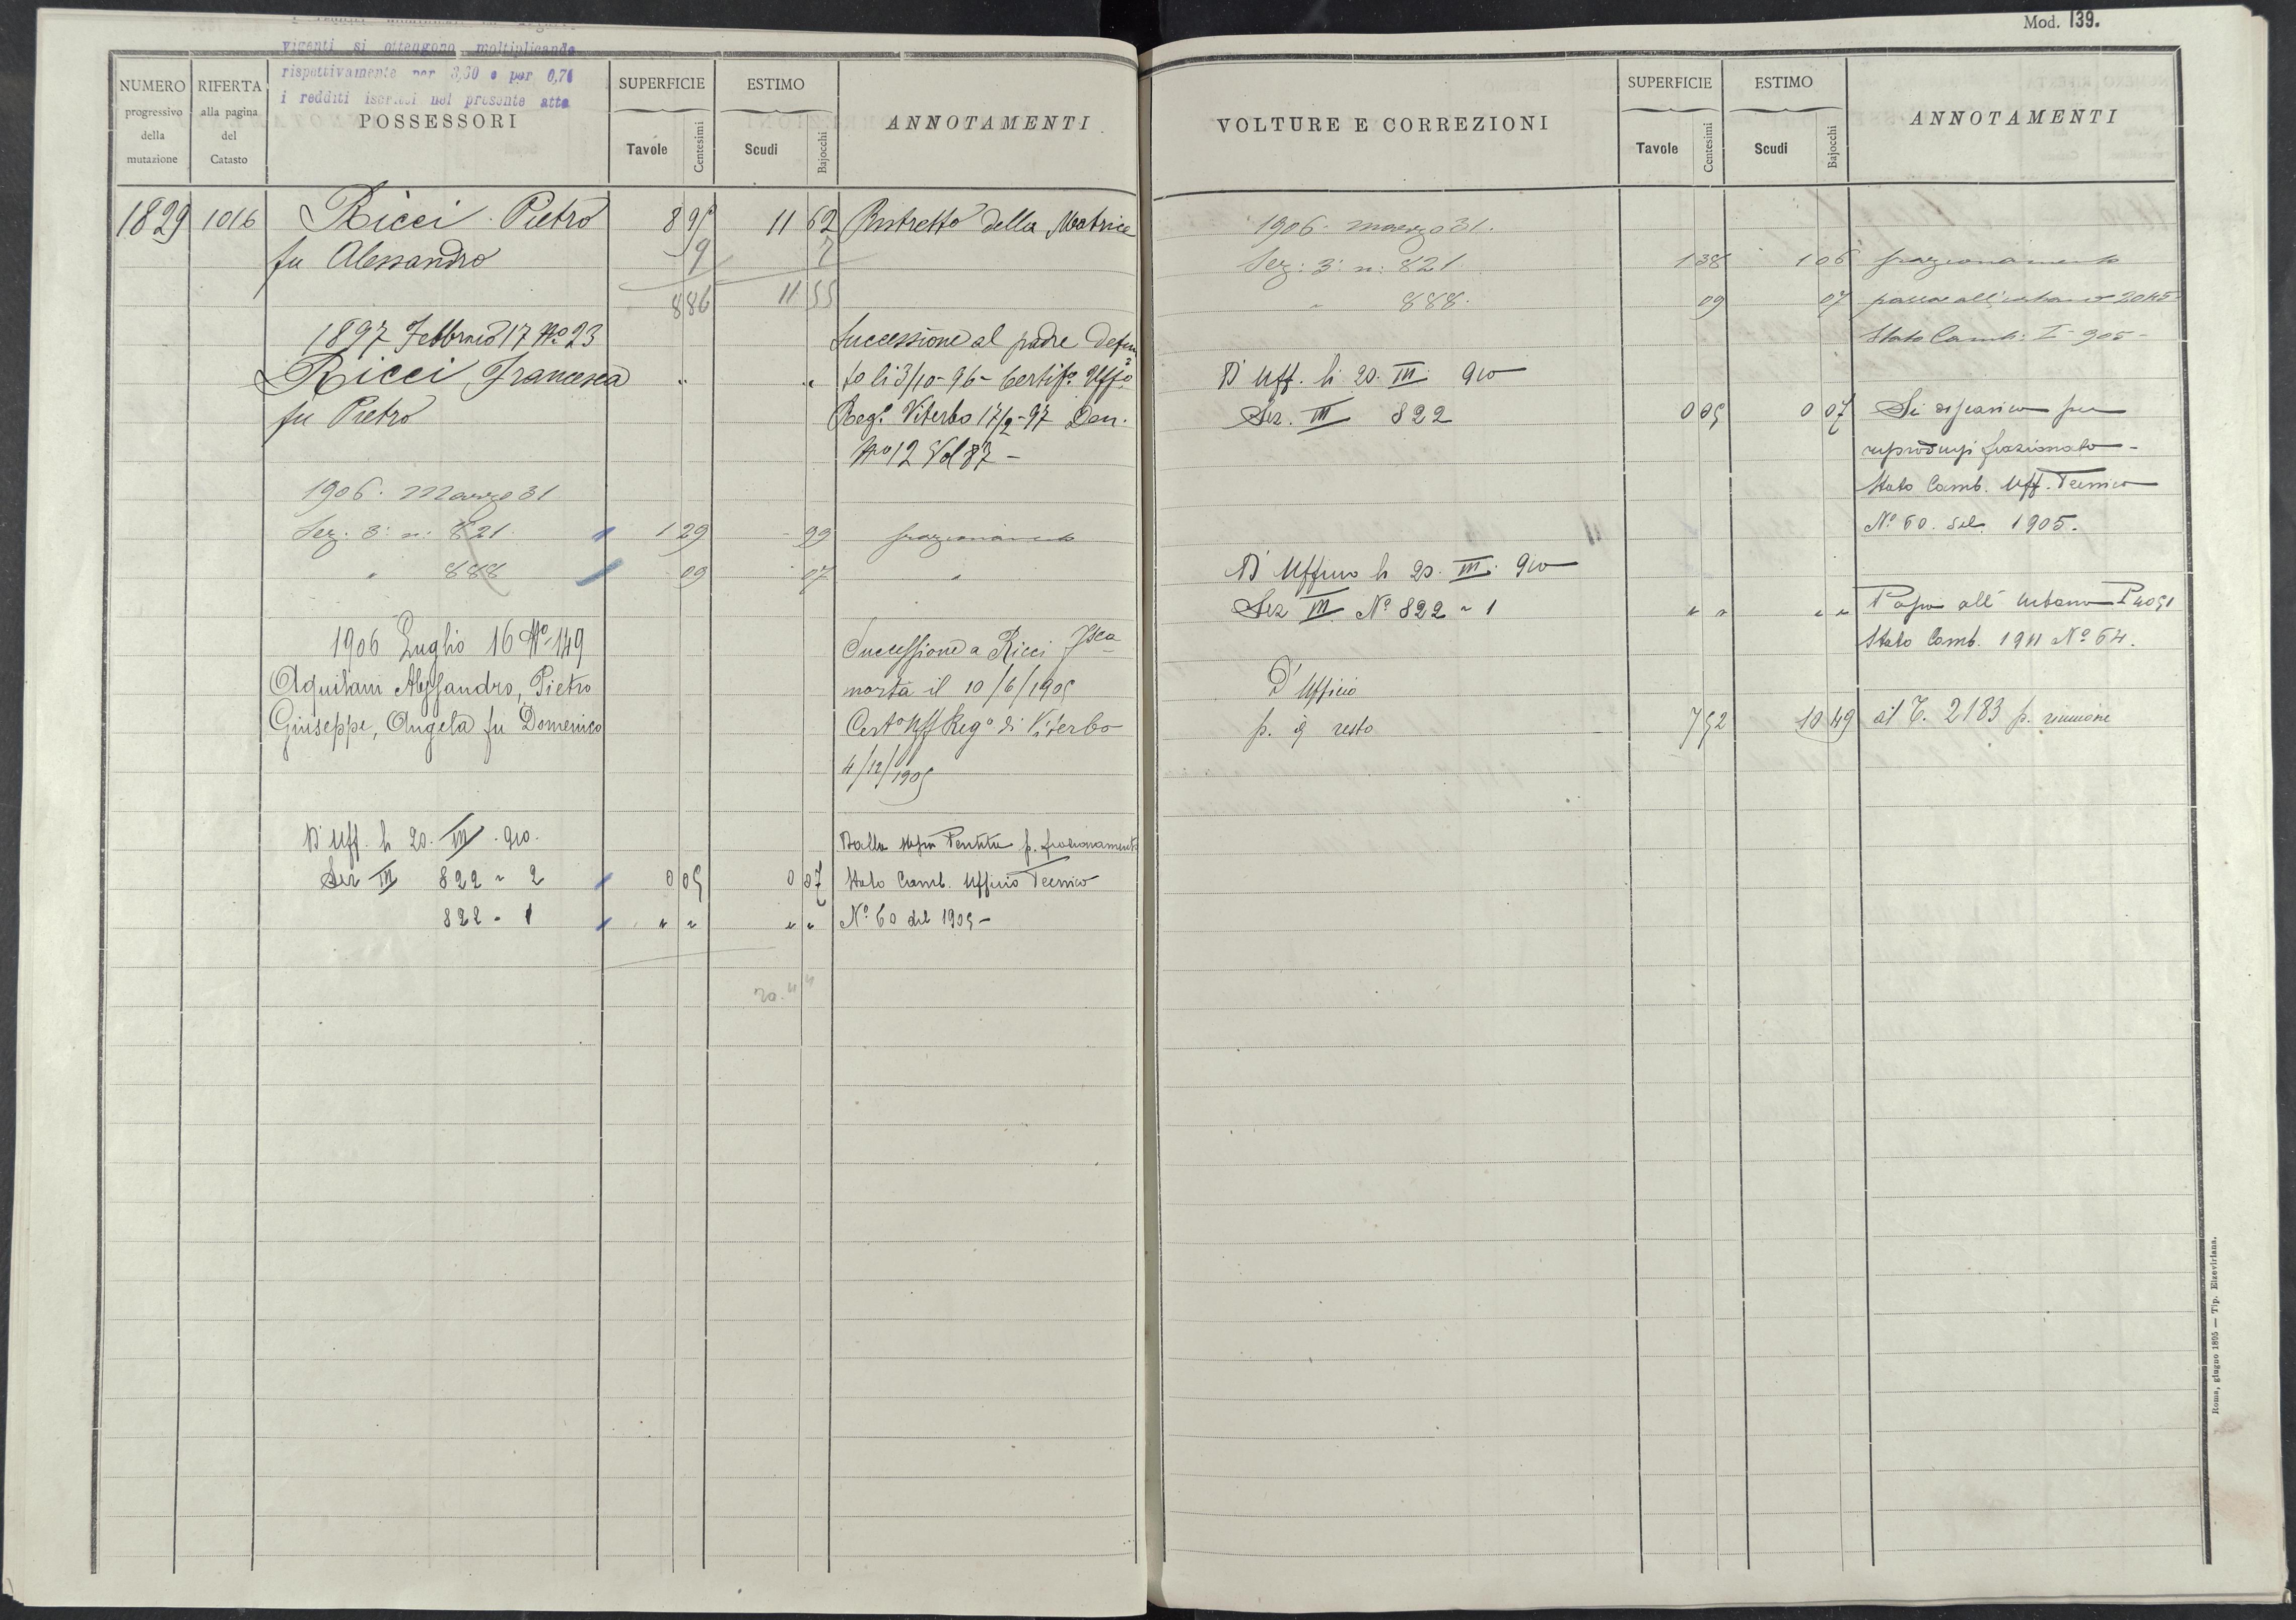 vigenti si ottengono moltiplicando
rispettivamente per 3,60 e per 0,71
i redditi iscritti nel presente atto
NUMERO progressivo della mutazione
RIFERTA alla pagina del Catasto
POSSESSORI
SUPERFICIE
Tavole Centesimi
ESTIMO
Scudi Bajocchi
ANNOTAMENTI
1829 1016 Ricci Pietro 8 95 11 62 Ristretto della Matrice
fu Alessandro 9 7
8 86 11 55
1897 Febbraio 17 No 23 Successione al padre defun
Ricci Francesca " " to li 3/10-96- Certifo. Uffo
fu Pietro Rego. Viterbo 17/2-97 Den.
No 12 Vol 87 -
1906. Marzo 31
Sez. 3: n: 821 1 29 - 99 frazionamento
" 888 09 07 "
1906 Luglio 16 No 149 Successione a Ricci Fsca
Aquilani Alessandro, Pietro morta il 10/6/1905
Giuseppe, Angela fu Domenico Certo Uff Rego di Viterbo
4/12/1905
D'Uff. li 20. III. 910. Dalla Partita p. frazionamento
Sez III 822 - 2 0 05 0 07 Stato Camb. Ufficio Tecnico
822 - 1 " " " " No. 60 del 1905 -
Mod. 139.
VOLTURE E CORREZIONI
SUPERFICIE
Tavole Centesimi
ESTIMO
Scudi Bajocchi
ANNOTAMENTI
1906. marzo 31.
Sez: 3: n: 821. 1 38 1 06 frazionamento
" 888. 09 07 passa all'urbano 2045
Stato Camb: I - 905 -
D'Uff. li 20. III. 910
Sez. III 822 0 05 0 07 Si discarica per
riprodursi frazionato -
Stato Camb. Uff. Tecnico
No. 60. del 1905.
D'Ufficio li 20. III. 910
Sez III No. 822 - 1 " " " " Passa all'Urbano P 4051
Stato Camb. 1911 No. 64.
D'Ufficio
p. resto 7 52 10 49 al T. 2183 p. riunione
Roma, giugno 1895 — Tip. Elzeviriana.